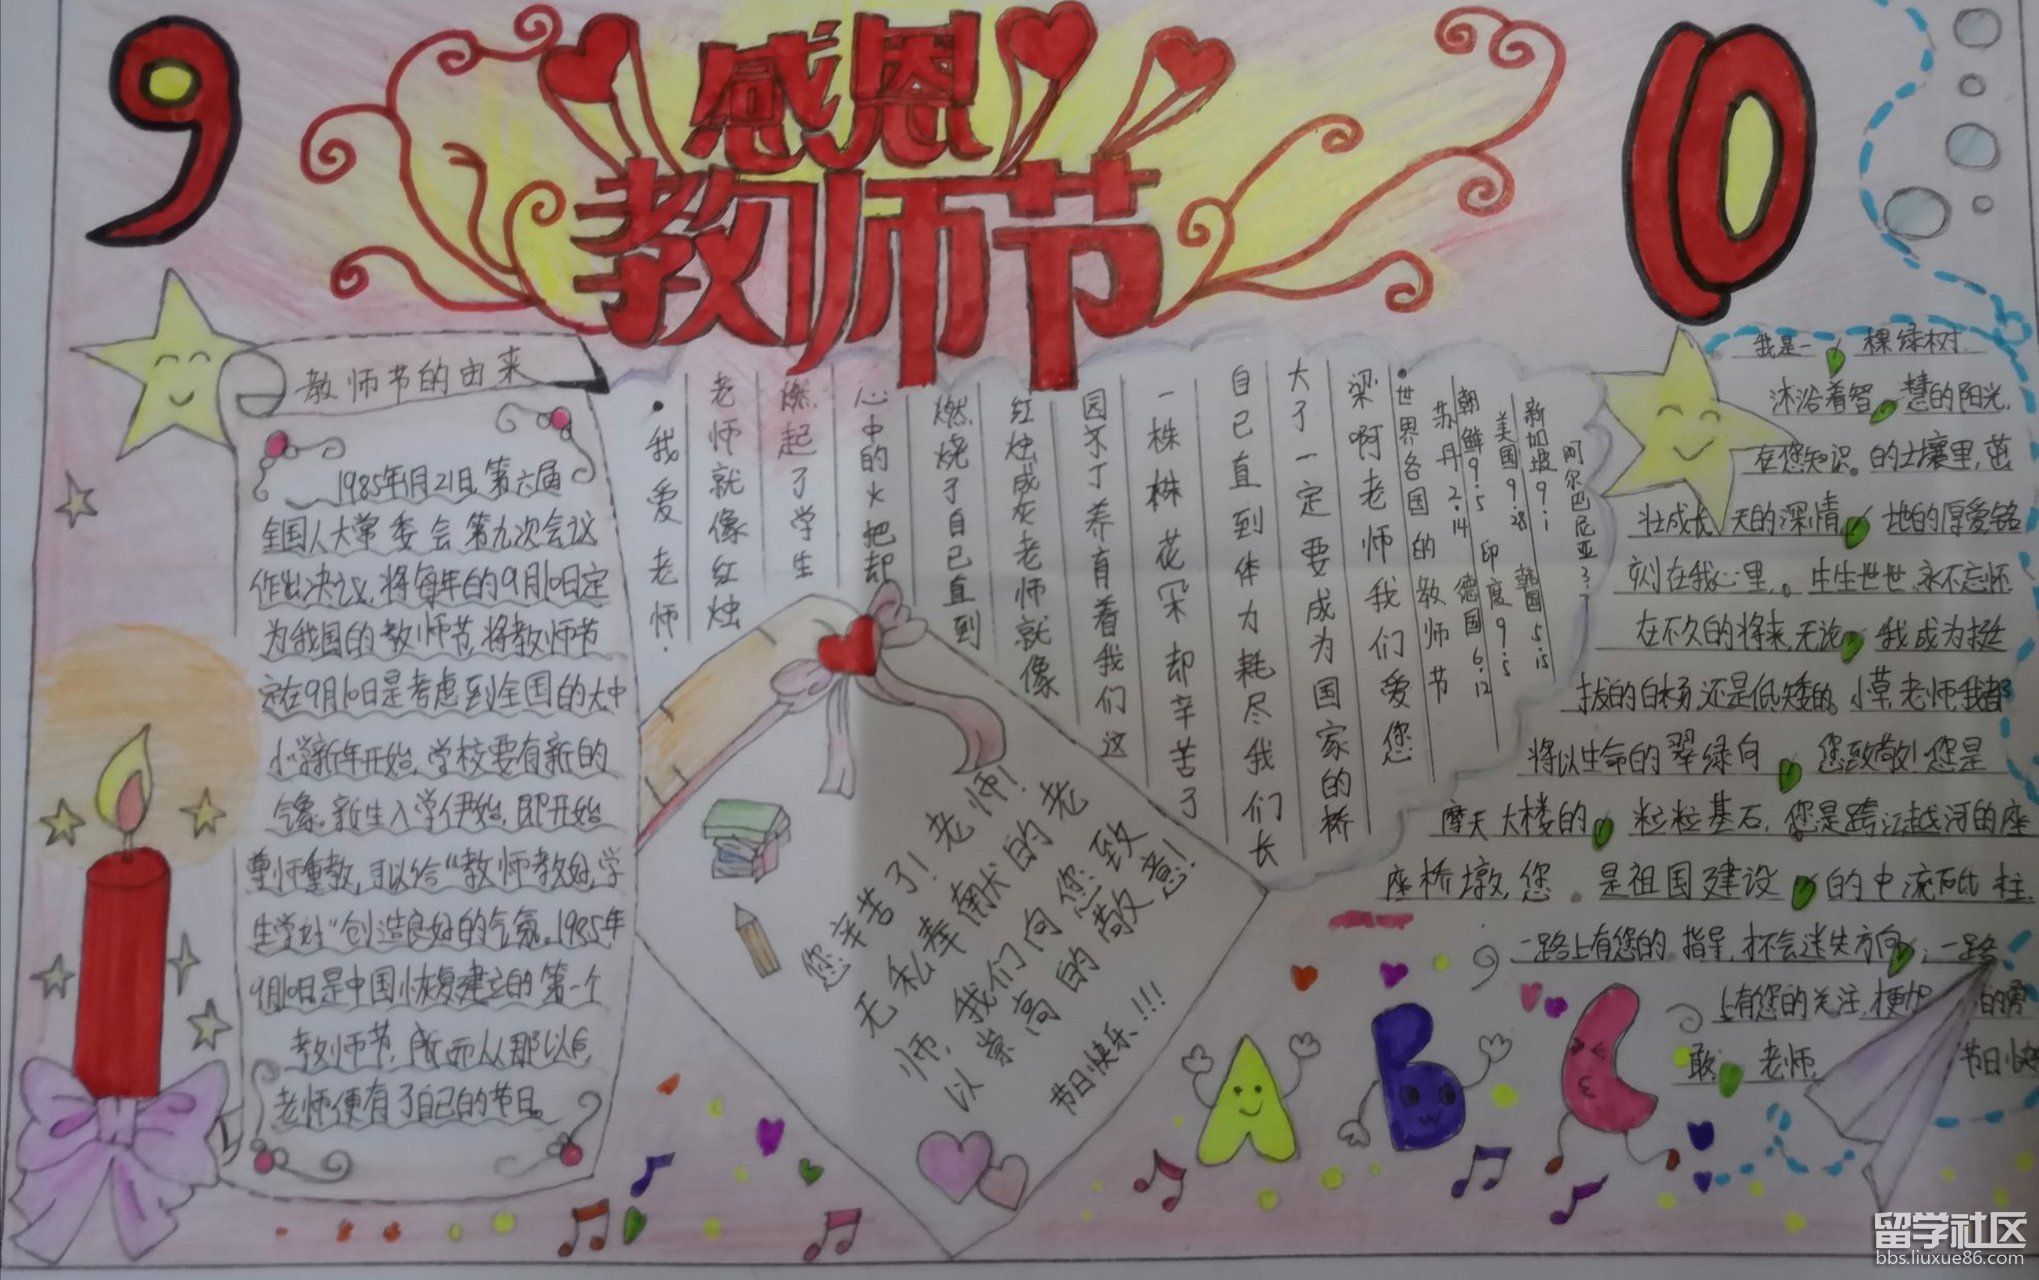 9
感恩
10
教师节
教师节的由来
1985年1月21日,第六届
全国人大常委会第九次会议
作出决议,将每年的9月10日定
为我国的教师节,将教师节
定在9月10日是考虑到全国的大中
小学新年开始,学校要有新的
气象。新生入学伊始,即开始
尊师重教,可以给“教师教好,学
生学好”创造良好的气氛。1985年
9月10日是中国恢复建立的第一个
教师节,
老师便有了自己的节日。
·我爱老师·
老师就像红烛
燃起了学生
心中的火把却
燃烧了自己直到
红烛成灰老师就像
园不丁养育着我们这
一株株花朵却辛苦了
自己直到体力耗尽我们长
大了一定要成为国家的桥
梁啊老师我们爱您
·世界各国的教师节
苏丹2·14 德国6·12
朝鲜9·5 印度9·5
美国9·28 韩国5·15
新加坡9·1
阿尔巴尼亚3·7
您辛苦了!老师!
无私奉献的老
师,我们向您致
以崇高的敬意!
节日快乐!!!
我是一棵绿树
沐浴着智慧的阳光,
在您知识。的土壤里,茁
壮成长,天的深情,地的厚爱铭
刻在我心里,。生生世世,永不忘怀
在不久的将来,无论我成为挺
拔的白杨,还是低矮的。小草,老师,我都
将以生命的翠绿向您致敬!您是
摩天大楼的粒粒基石,您是跨江越河的座
座桥墩,您。是祖国建设的中流砥柱.
一路上有您的指导,才不会迷失方向;一路
上有您的关注,才更加的勇
敢;老师,节日快
A B C
留学社区
bbs.liuxue86.com